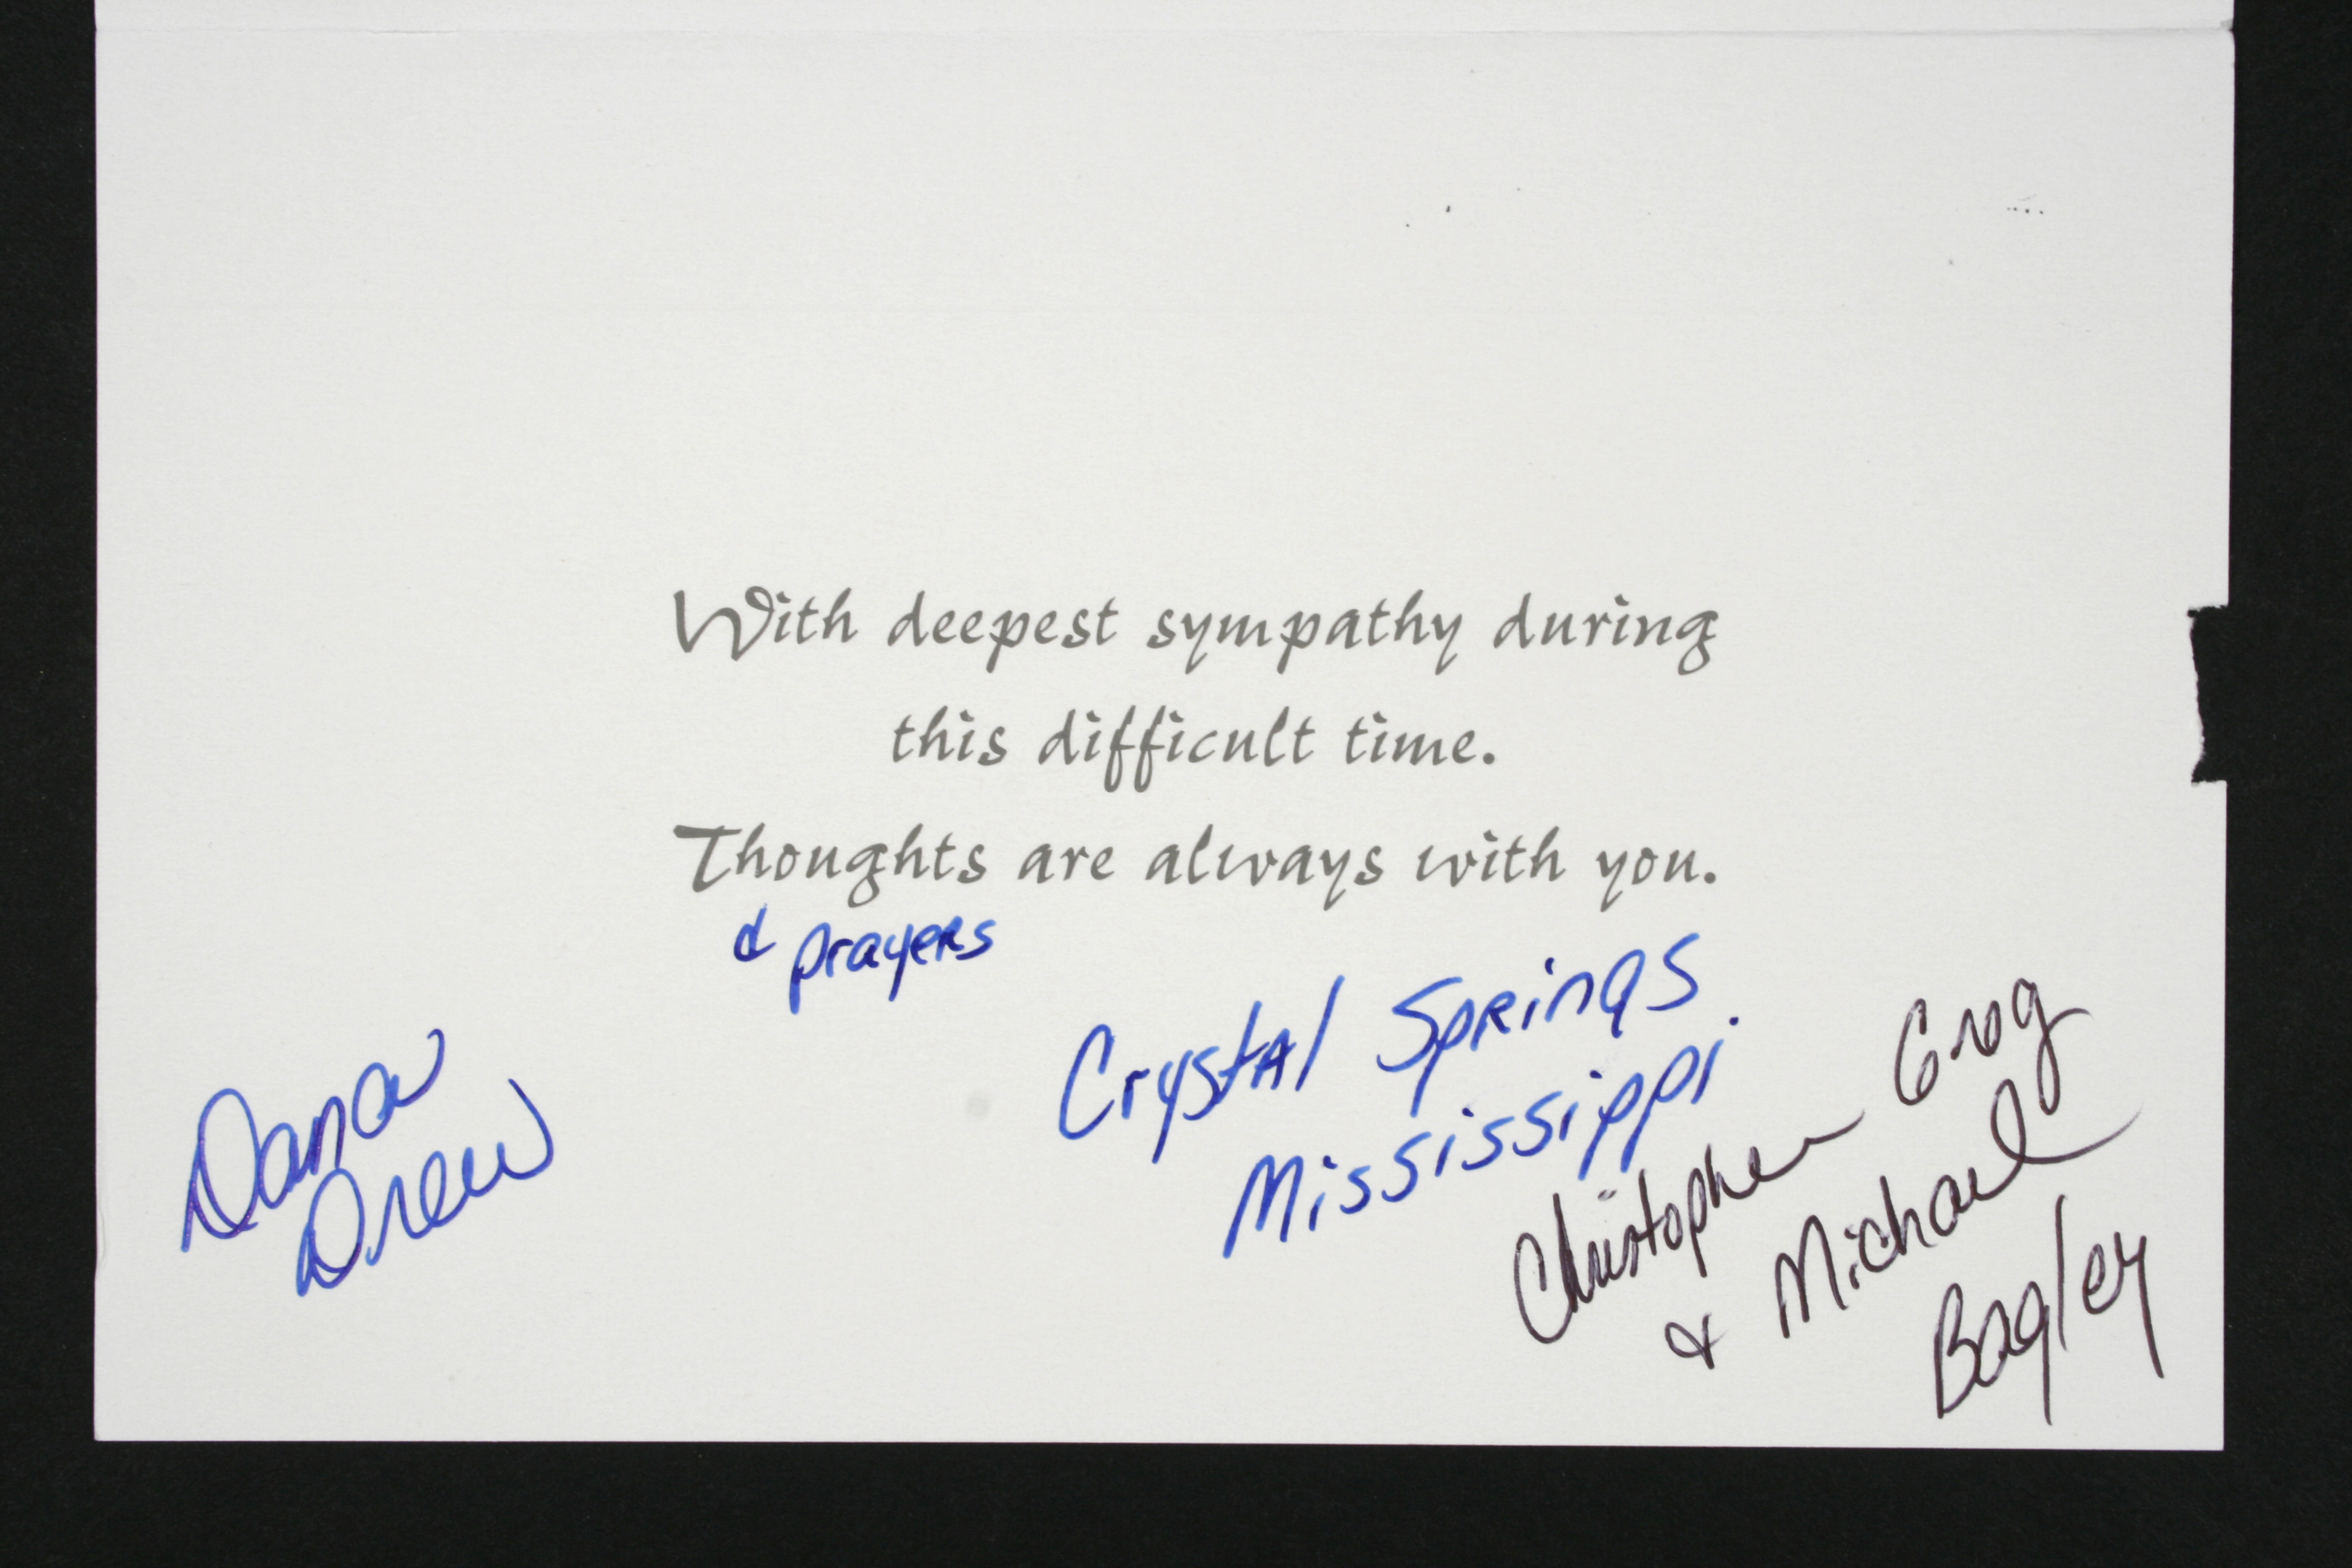 With deepest sympathy during
this difficult time.
Thoughts are always with you.
& prayers
Crystal Springs
Mississippi.
Dana
Drew
Greg
Christopher
& Michael
Bagley